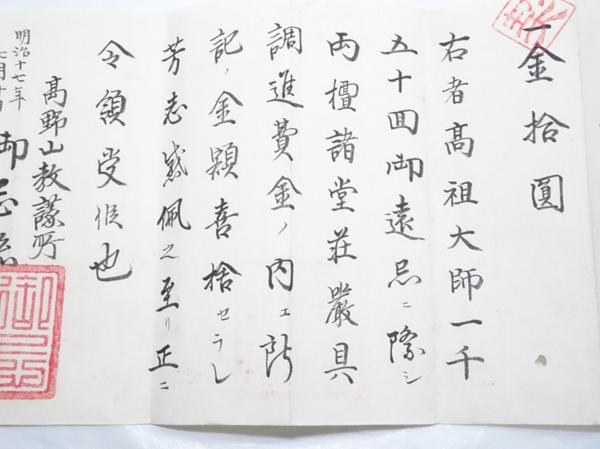 一金拾圓
右者髙祖大師一千
五十囬御遠忌ニ際シ
両壇諸堂荘嚴具
調進費金ノ内エ前
記ノ金額喜捨セラレ
芳志感佩之至リ正ニ
令領受候也
髙野山教議所
明治十七年
七月十
御忌